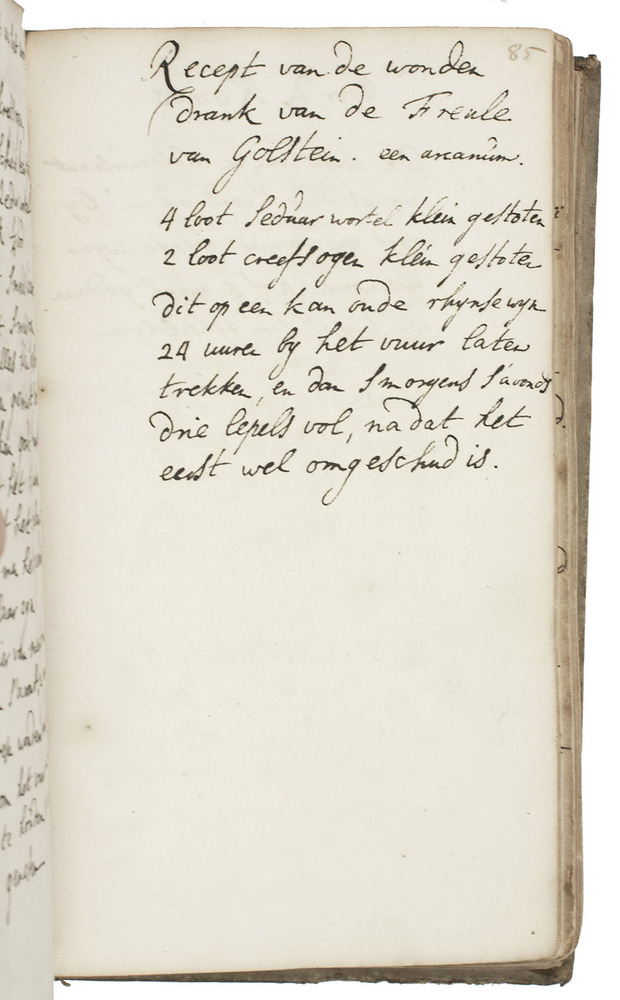 85
Recept van de wonden
drank van de Freule
van Golstein. een arcanum.
4 loot Seduar wortel klein gestoten
2 loot creefsogen klein gestoten
dit op een kan oude rhynse wyn
24 uuren by het vuur laten
trekken, en dan Smorgens S'avonds
drie lepels vol, na dat het
eerst wel omgeschud is.